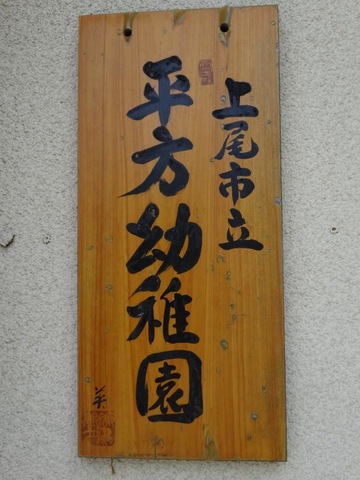 上尾市立
平方幼稚園